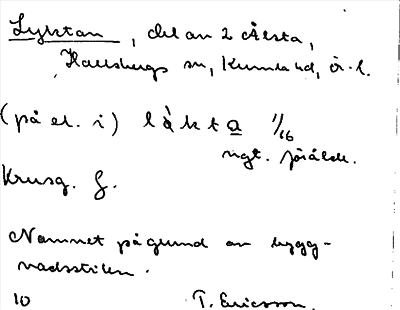 Lyktan, del av 2 Älsta,
Hallsbergs sn, Kumla hd, Ör. l.
(på el. i) làkta 1/16
ngt. föråld.
Krusg. f.
Namnet på grund av bygg-
nadsstilen.
10 T. Ericsson.